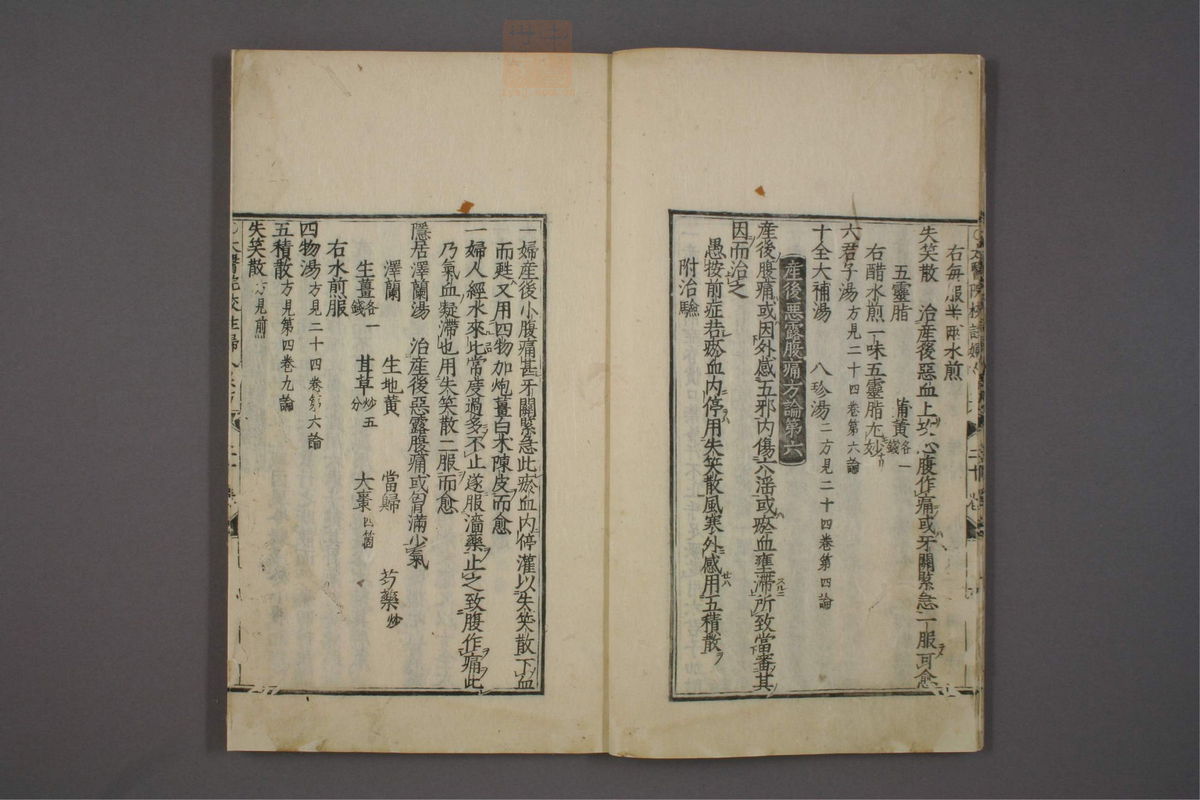 右每服半兩水煎
失笑散 治產後惡血上攻心腹作痛或牙關緊急一服可愈
五靈脂 蒲黃各一錢
右醋水煎一味五靈脂尤妙
六君子湯方見二十四卷第六論
十全大補湯 八珍湯二方見二十四卷第四論
產後惡露腹痛方論第六
產後腹痛或因外感五邪內傷六淫或瘀血壅滯所致當審其
因而治之
愚按前症若瘀血內停用失笑散風寒外感用五積散
附治驗
一婦產後小腹痛甚牙關緊急此瘀血內停灌以失笑散下血
而甦又用四物加炮薑白朮陳皮而愈
一婦人經水來比常度過多不止遂服澁藥止之致腹作痛此
乃氣血凝滯也用失笑散二服而愈
隱居澤蘭湯 治產後惡露腹痛或胷滿少氣
澤蘭 生地黃 當歸 芍藥炒
生薑各一錢 甘草炒五分 大棗四箇
右水煎服
四物湯方見二十四卷第六論
五積散方見第四卷九論
失笑散方見前